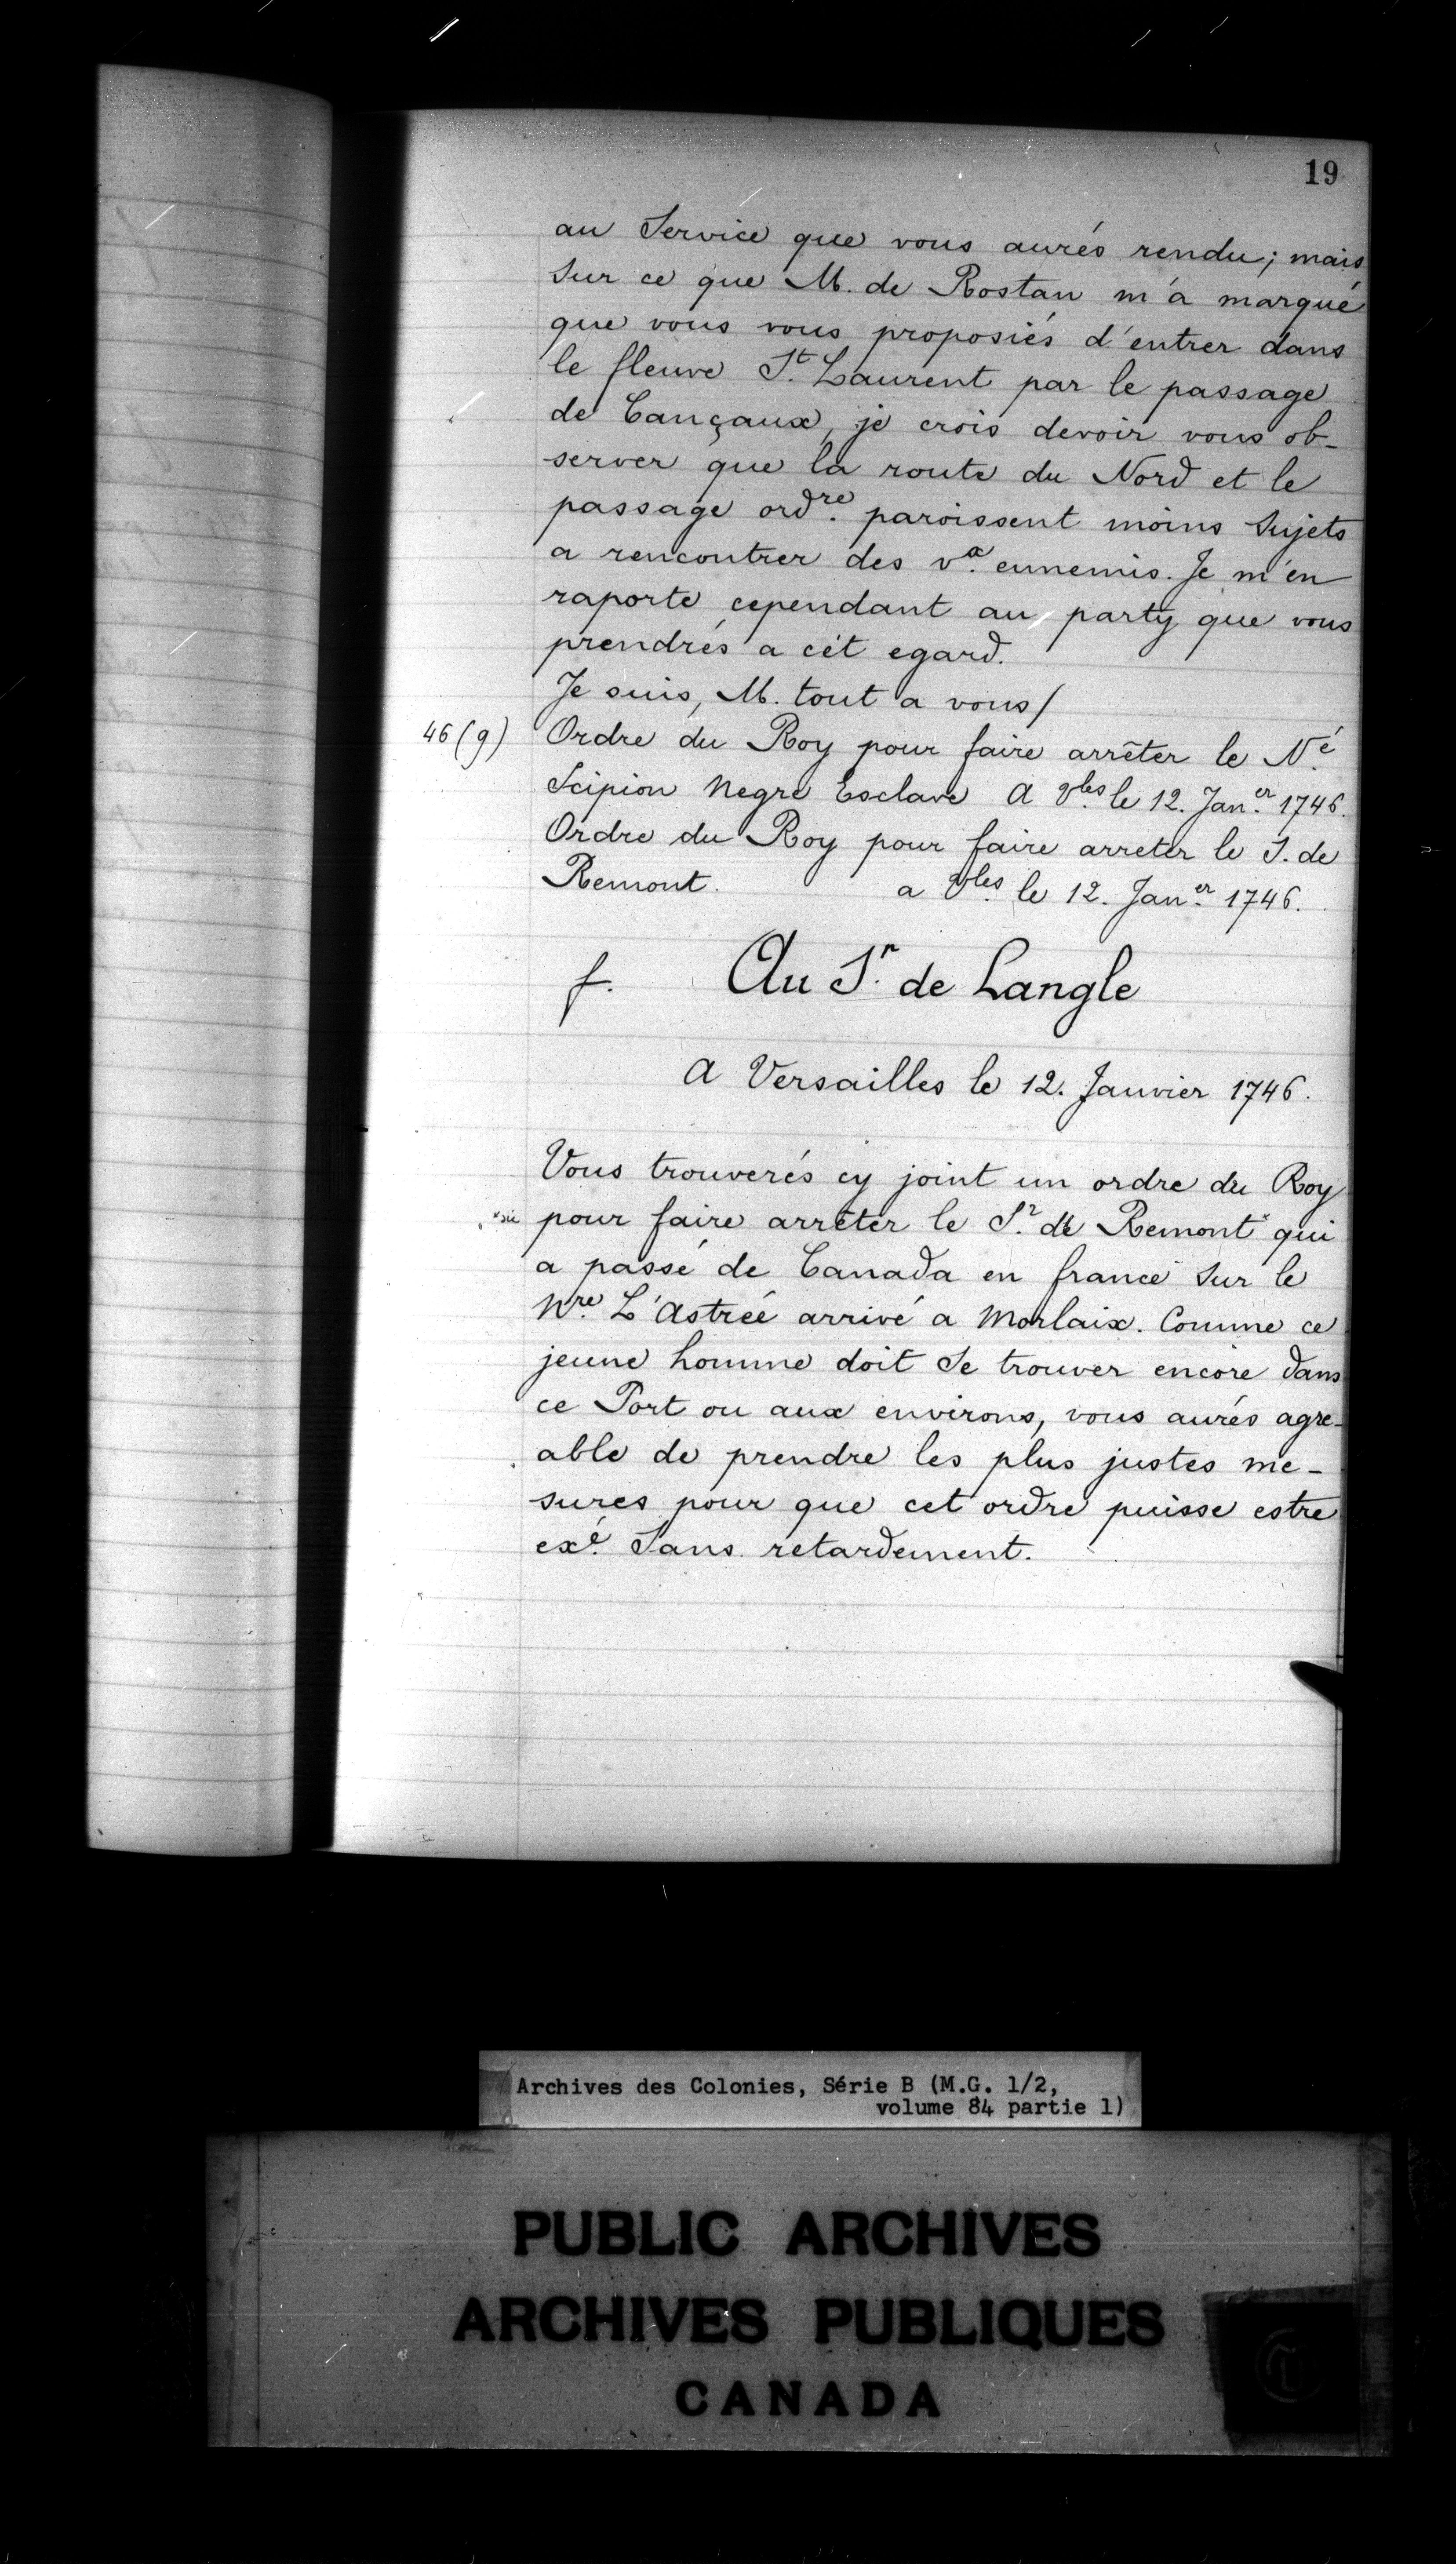 19
au Service que vous aurés rendu; mais
Sur ce que M. de Rostan m'a marqué
que vous vous proposiés d'entrer dans
le fleuve St. Laurent par le passage
de Cançaux, je crois devoir vous ob-
server que la route du Nord et le
passage ordre. paroissent moins Sujets
a rencontrer des vx. ennemis. Je m'en
raporte cependant au party que vous
prendrés a cét egard.
Je suis, M. tout a vous/
46 (g) Ordre du Roy pour faire arrêter le Né.
Scipion Negre Esclave A Vles. le 12. Janer. 1746.
Ordre du Roy pour faire arreter le S. de
Remont. a Vles. le 12. Janer. 1746.
f. Au Sr. de Langle
A Versailles le 12. Janvier 1746.
Vous trouverés cy joint un ordre du Roy
pour faire arrêter le Sr. de Remont* qui
a passé de Canada en france Sur le
Nre. L'Astrée arrivé a Morlaix. Comme ce
jeune homme doit Se trouver encore dans
ce Port ou aux environs, vous aurés agre-
able de prendre les plus justes me-
sures pour que cet ordre puisse estre
exé. Sans retardement.
Archives des Colonies, Série B (M.G. 1/2,
volume 84 partie 1)
PUBLIC ARCHIVES
ARCHIVES PUBLIQUES
CANADA